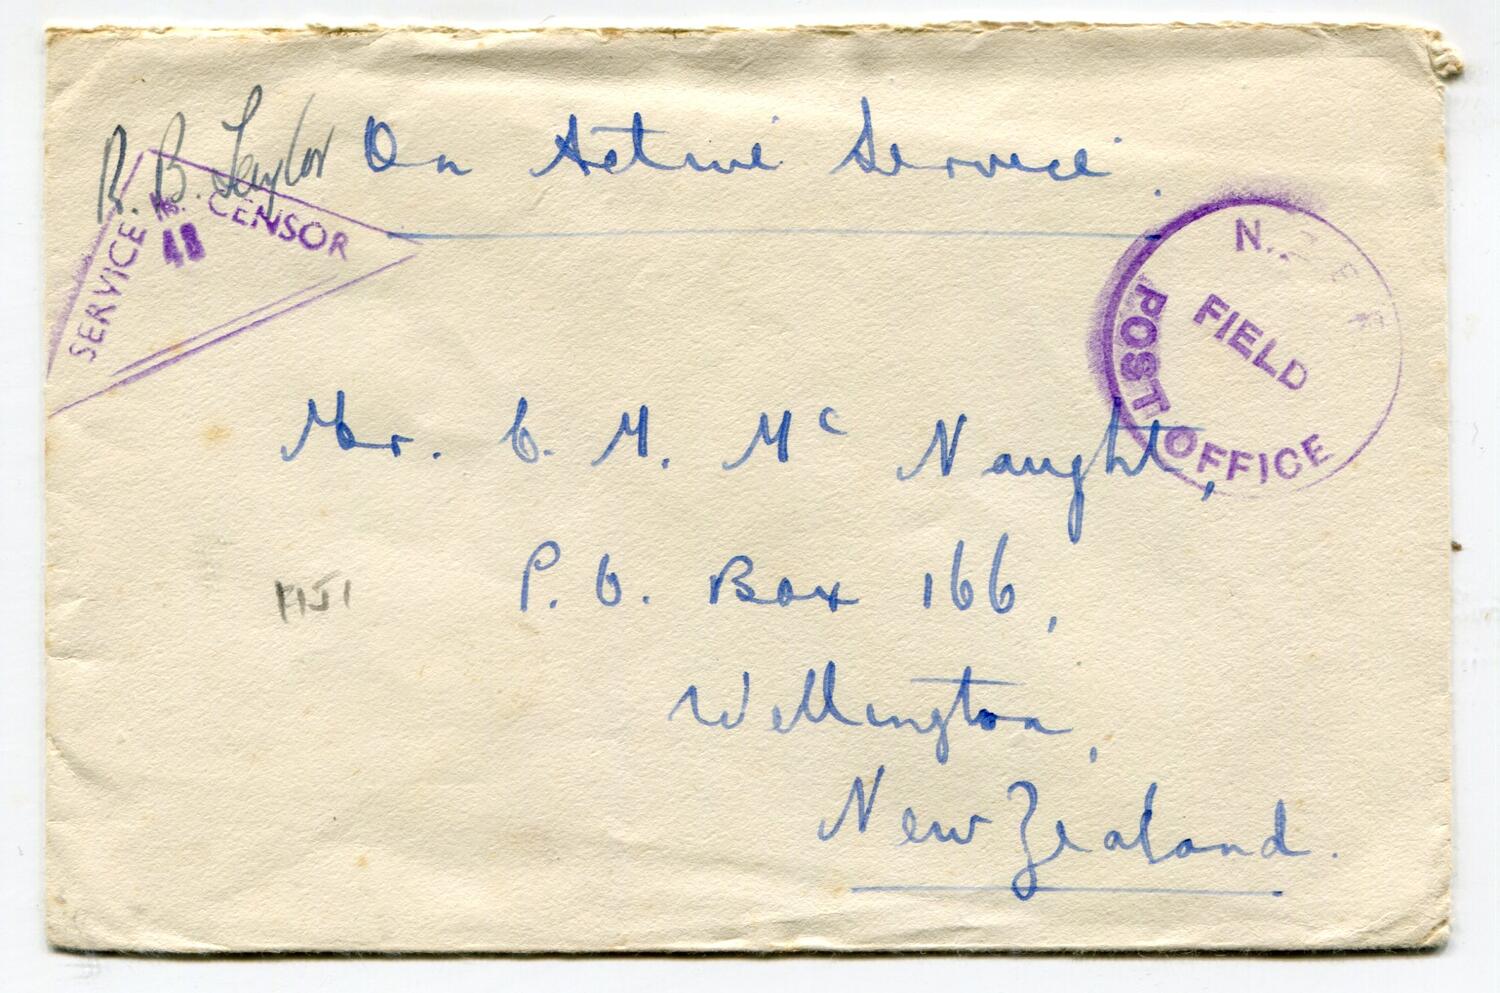 R. B. Taylor
On Active Service.
SERVICE No. CENSOR
48
N.Z.E.F.
FIELD
POST OFFICE
Mr. C. M. McNaught,
P.O. Box 166,
Wellington,
New Zealand.
FIJI